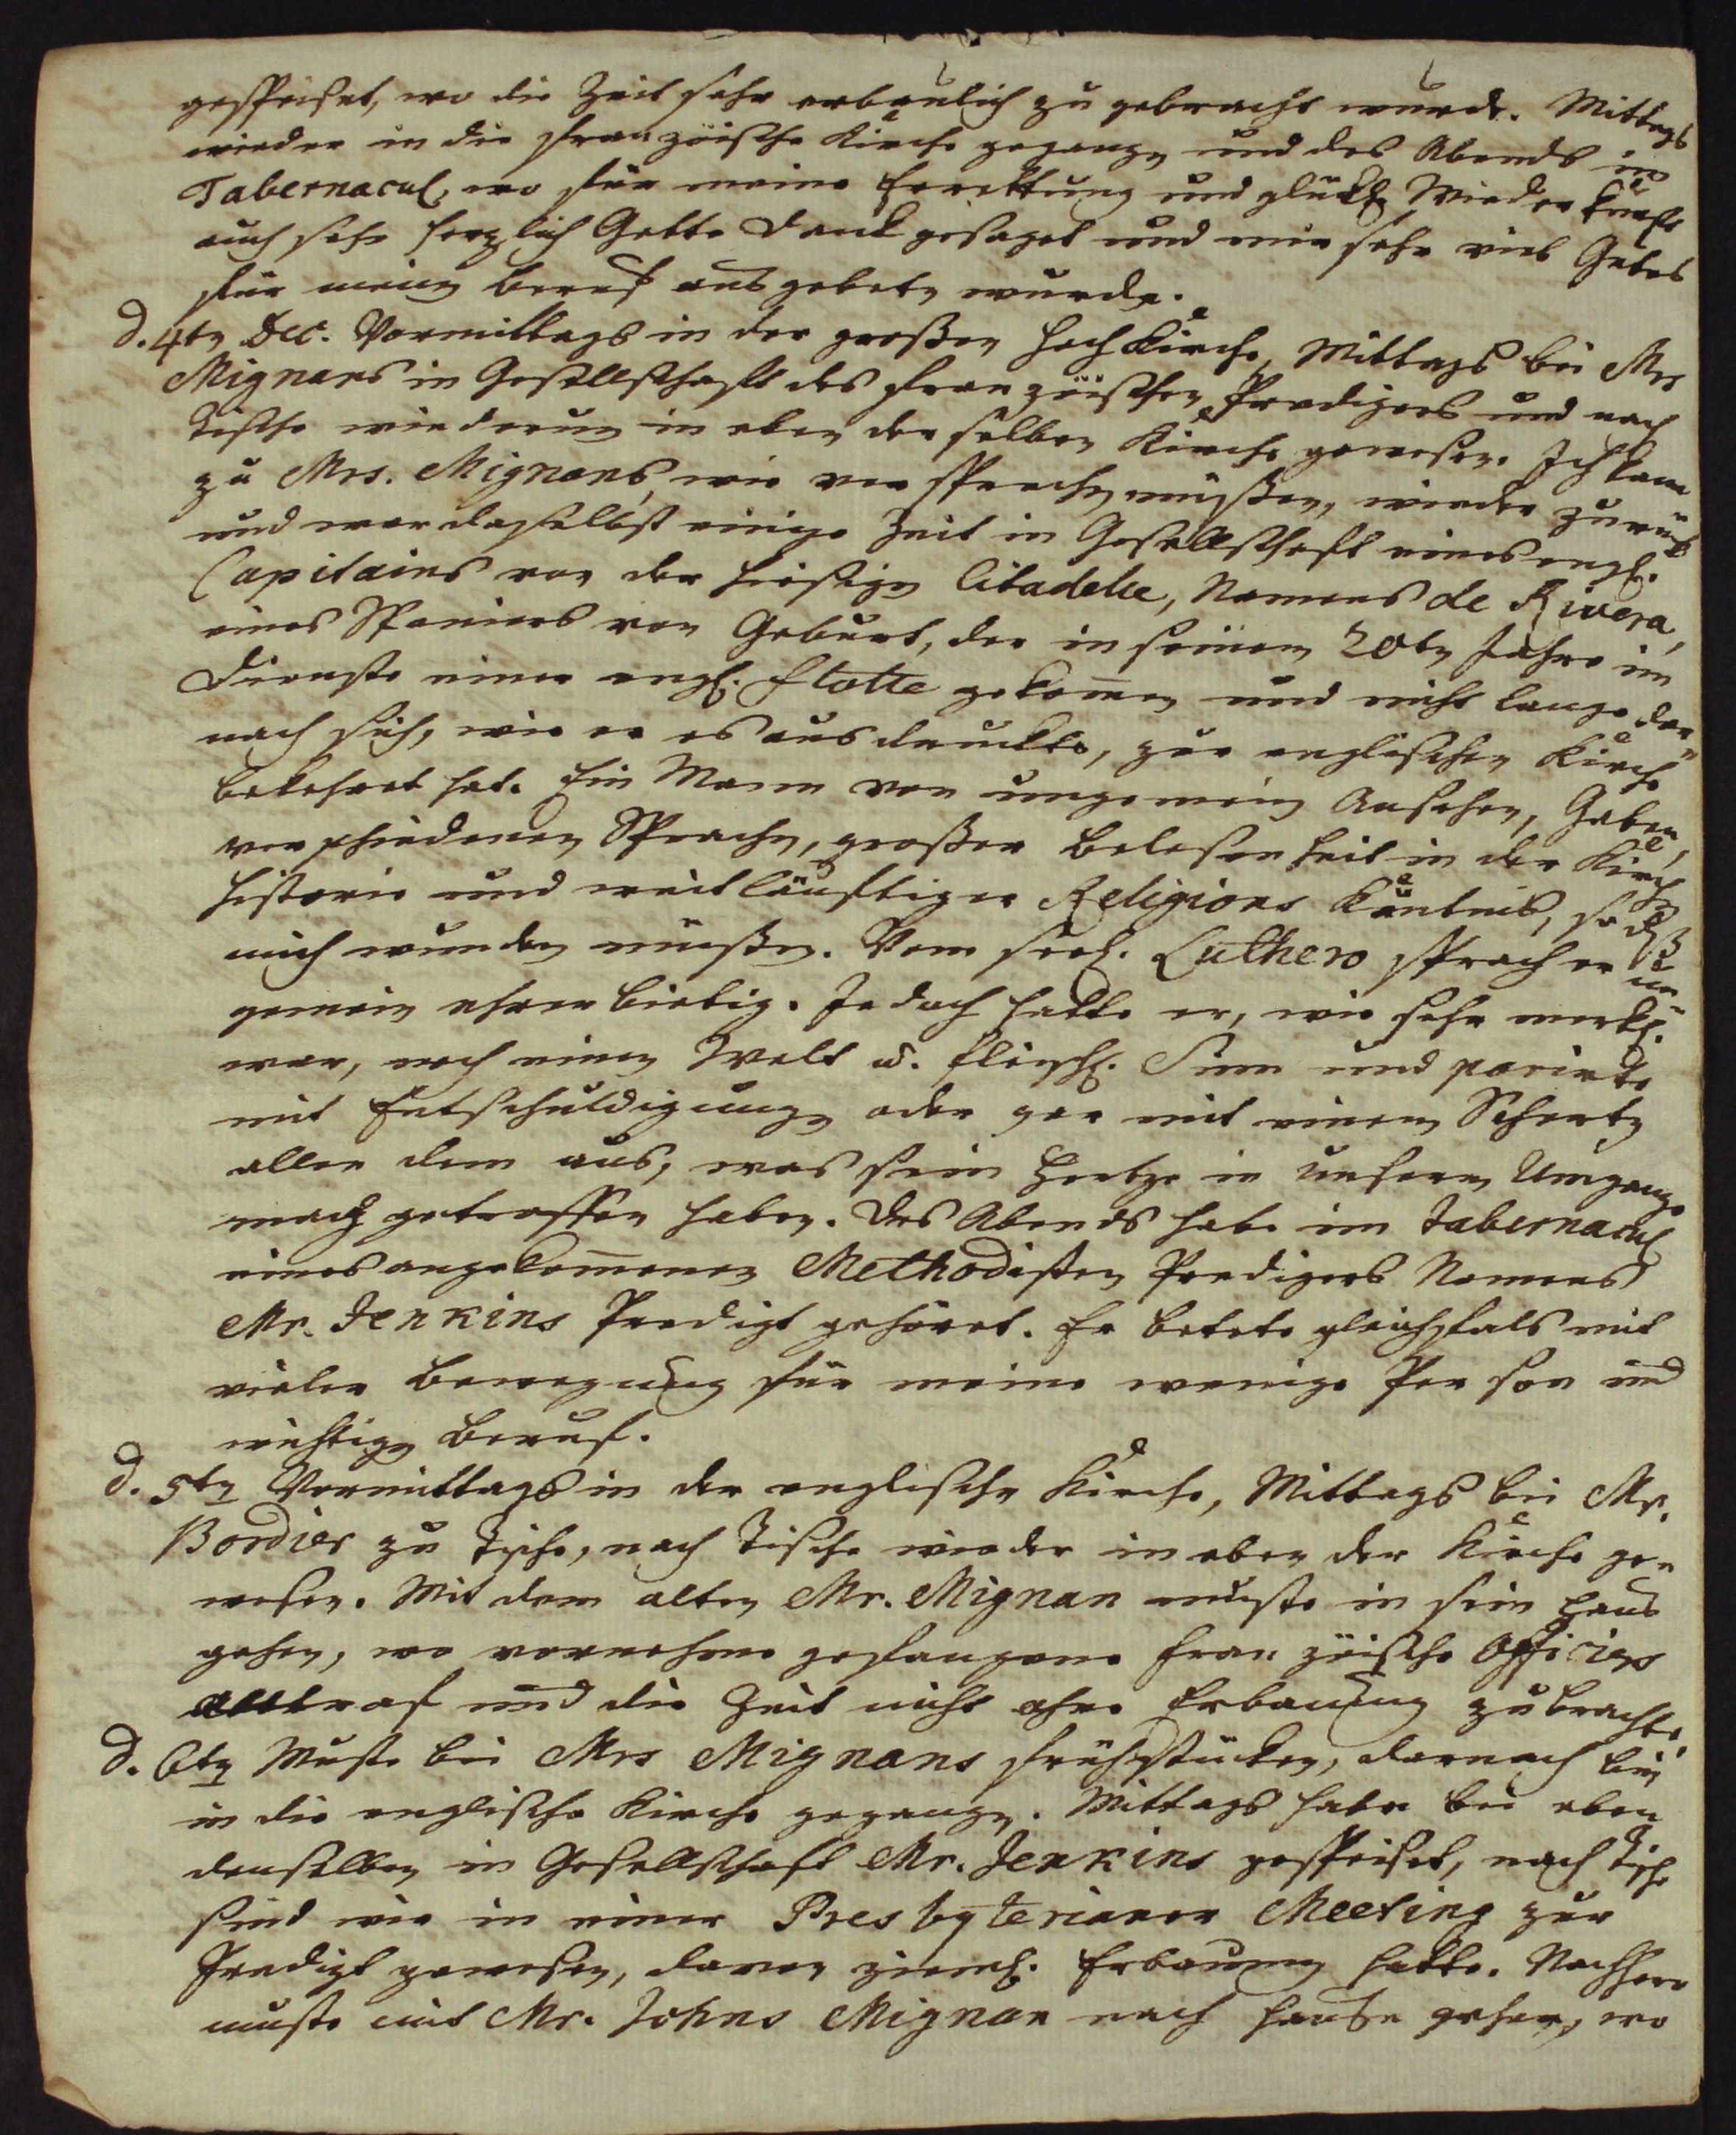 gespeiset, wo die Zeit sehr erbaulich zu gebracht wurde. Mittags
wieder in die französche Kirche gegangen und des Abends im
Tabernacul, wo für meine Errettung und glückl. Wiederkunft
auch sehr herzlich Gotte Dank gesaget und mir sehr viel Gutes
für meinen Beruf aus gebeten wurde.
d. 4ten Dec. Vormittags in der großen Hochkirche, Mittags bei Mrs
Mignans in Gesellschaft des französchen Predigers und nach
Tische wiederum in eben der selben Kirche gewesen. Ich kam
zu Mrs. Mignans, wie versprechen müßen, wieder zurück
und war daselbst einige Zeit in Gesellschaft eines engl.
Capitains von der hiesigen Citadelle, Namens de Rivera,
eines Spaniers von Geburt, der in seinem 20ten Jahre in
Dienste einer engl. Flotte gekom̄en und nicht lange dar-
nach sich, wie er es ausdruckte, zur englischen Kirche
bekehret hat. Ein Mann von ungemeinen Ansehen, Gaben,
verschiedenen Sprachen, großer Belesenheit in der Kirchen
Historie und weitläuftiger Religions Käntnis, so daß
mich wundern müßen. Vom seel. Luthero sprach er un-
gemein ehrerbietig. Jedoch hatte er, wie sehr merkl.
war, noch einen Welt u. fleischl. Sinn und parirte
mit Entschuldigungen oder gar mit einem Schertz
allen dem aus, was sein Hertze in unserm Umgange
mag getroffen haben. Des Abends habe im Tabernacul
eines angekom̄enen Methodisten Predigers Namens
Mr. Jenkins Predigt gehöret. Er betete gleichfals mit
vieler Bewegung für meine wenige Person und
wichtigen Beruf.
d. 5ten Vormittags in der englischen Kirche, Mittags bei Mr.
Bordier zu Tische, nach Tische wieder in eben der Kirche ge-
wesen. Mit dem alten Mr. Mignan muste in sein Haus
gehen, wo vornehme gefangene französche Officiers
antraf und die Zeit nicht ohne Erbauung zubrachte.
d. 6ten Muste bei Mrs Mignans frühstücken, darnach bin
in die englische Kirche gegangen. Mittags habe bei eben
denselben in Gesellschaft Mr. Jenkins gespeiset, nach Tische
sind wir in einer Presbyterianer Meeting zur
Predigt gewesen, davon ziemL. Erbauung hatte. Nachhero
muste mit Mr. Johns Mignan nach Hause gehen, wo